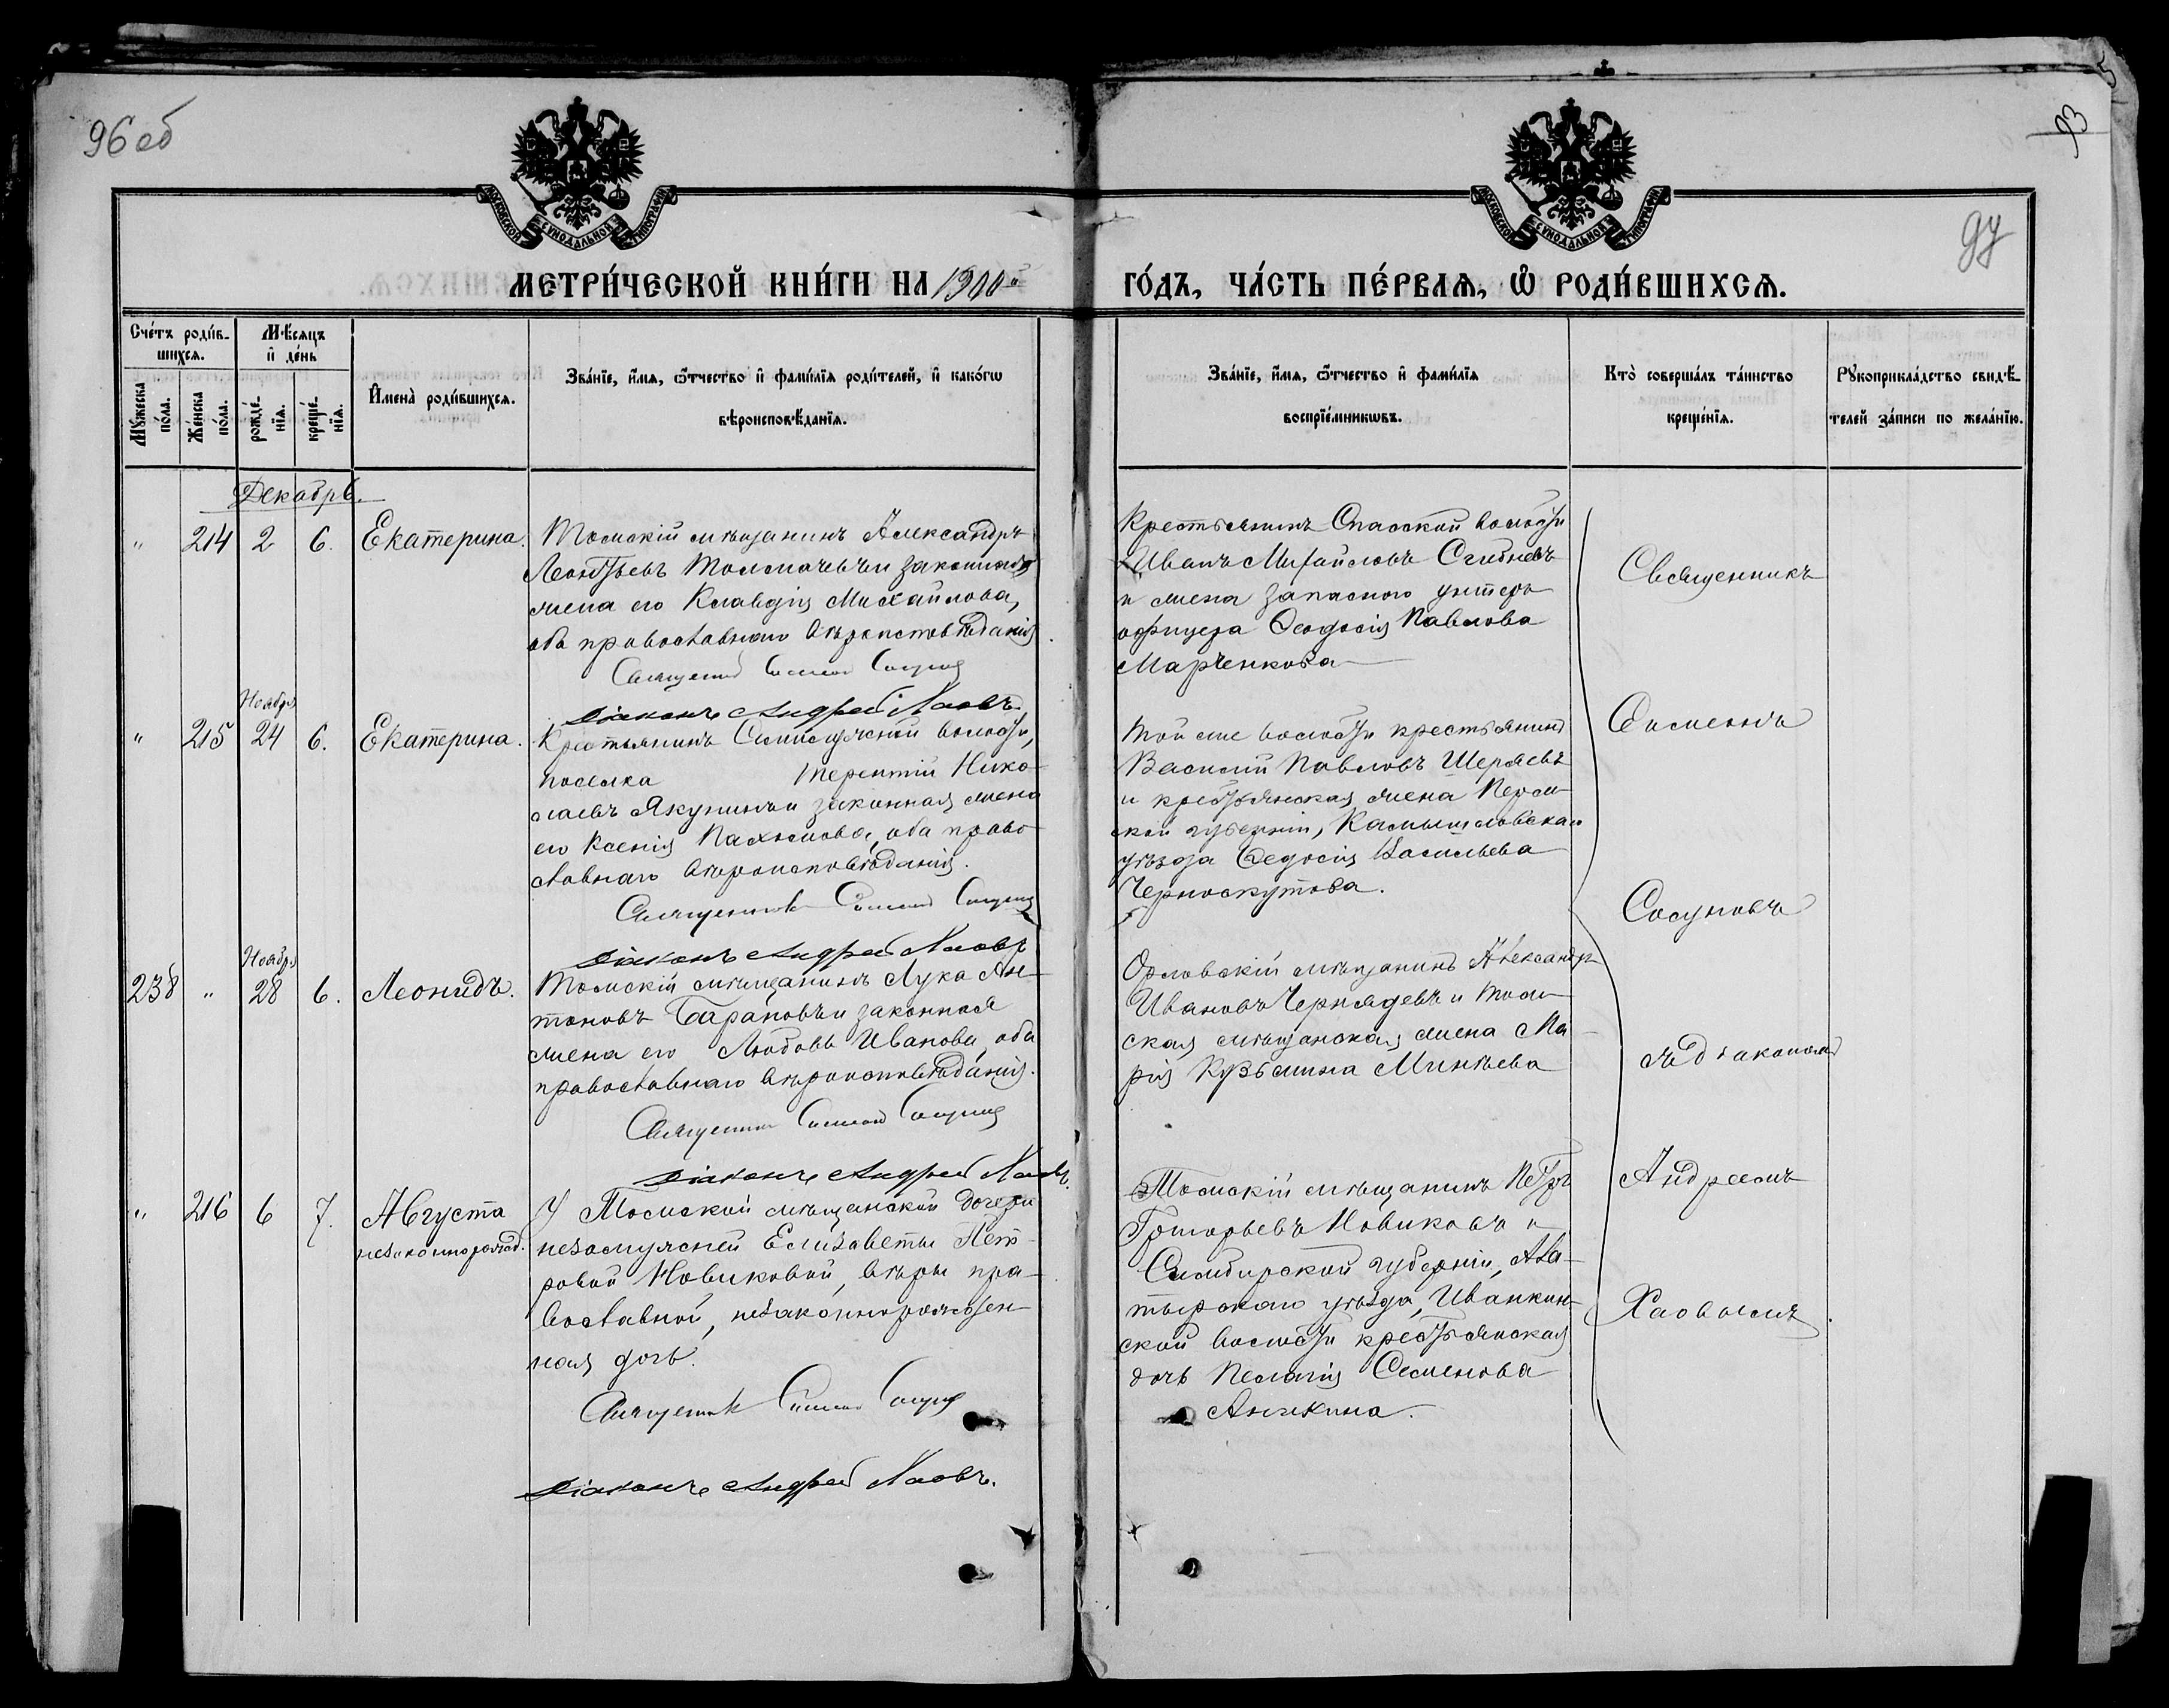 96 об
93
97
МОСКОВСКОЙ СѴНОДАЛЬНОЙ ТИПОГРАФІИ
МОСКОВСКОЙ СѴНОДАЛЬНОЙ ТИПОГРАФІИ
МЕТРИ́ЧЕСКОЙ КНИ́ГИ НА 1900й
ГО́ДЪ, ЧА́СТЬ ПЕ́РВАѦ, Ѡ҆ РОДИ́ВШИХСѦ.
Сче́тъ роди́в-
шихсѧ.
Мꙋ́жеска по́ла.
Же́нска по́ла.
Мѣ́сѧцъ
и҆ де́нь
рожде́-
нїѧ.
креще́-
нїѧ.
И҆мена̀ роди́вшихсѧ.
Зва́нїе, и҆́мѧ, ѻ҆́тчество и҆ фами́лїѧ роди́телей, и҆ како́гѡ
вѣроисповѣ́данїѧ.
Зва́нїе, и҆́мѧ, ѻ҆́тчество и҆ фами́лїѧ
воспрїе́мникѡвъ.
Кто̀ соверша́лъ та́инство
креще́нїѧ.
Рꙋкоприкла́дство свидѣ́-
телей за́писи по жела́нїю.
Декабрь.
" 214 2 6. Екатерина.
Томскій мѣщанинъ Александръ
Леонтьевъ и законная
жена его Клавдія Михайлова,
оба православнаго вѣроисповѣданія.
Священникъ Симеонъ Сосуновъ
Діаконъ Андрей Хаовъ.
Крестьянинъ Спасской волости
Иванъ Михайловъ Сгибневъ
и жена запаснаго унтеръ
офицера Ѳеодосія Павлова
Марченкова
Ноября
" 215 24 6. Екатерина.
Крестьянинъ Семилужной волости,
поселка Терентій Нико-
лаевъ Якунинъ и законная жена
его Ксенія Пахомова, оба право-
славнаго вѣроисповѣданія.
Священникъ Симеонъ Сосуновъ
Діаконъ Андрей Хаовъ
Той же волости крестьянинъ
Василій Павловъ Шеряевъ
и крестьянская жена Перм-
ской губерніи, Камышловскаго
уѣзда Ѳедосія Васильева
Черноскутова.
Ноября
238 " 28 6. Леонидъ.
Томскій мѣщанинъ Лука Ан-
тоновъ Барановъ и законная
жена его Любовь Иванова, оба
православнаго вѣроисповѣданія.
Священникъ Симеонъ Сосуновъ
Діаконъ Андрей Хаовъ.
Орловскій мѣщанинъ Александръ
Ивановъ Чернядевъ и Том-
ская мѣщанская жена Ма-
рія Кузьмина Минѣева
" 216 6 7. Августа
незаконнорожд.
У Томской мѣщанской дочери
незамужней Елизаветы Пет-
ровой Новиковой, вѣры пра-
вославной, незаконнорожден-
ная дочь.
Священникъ Симеонъ Сосуновъ
Діаконъ Андрей Хаовъ.
Томскій мѣщанинъ Петръ
Григорьевъ Новиковъ и
Симбирской губерніи, Ала-
тырскаго уѣзда, Иванкин-
ской волости крестьянская
дочь Пелагія Семенова
Аникина.
Священникъ
Симеонъ
Сосуновъ
съ діакономъ
Андреемъ
Хаовымъ.